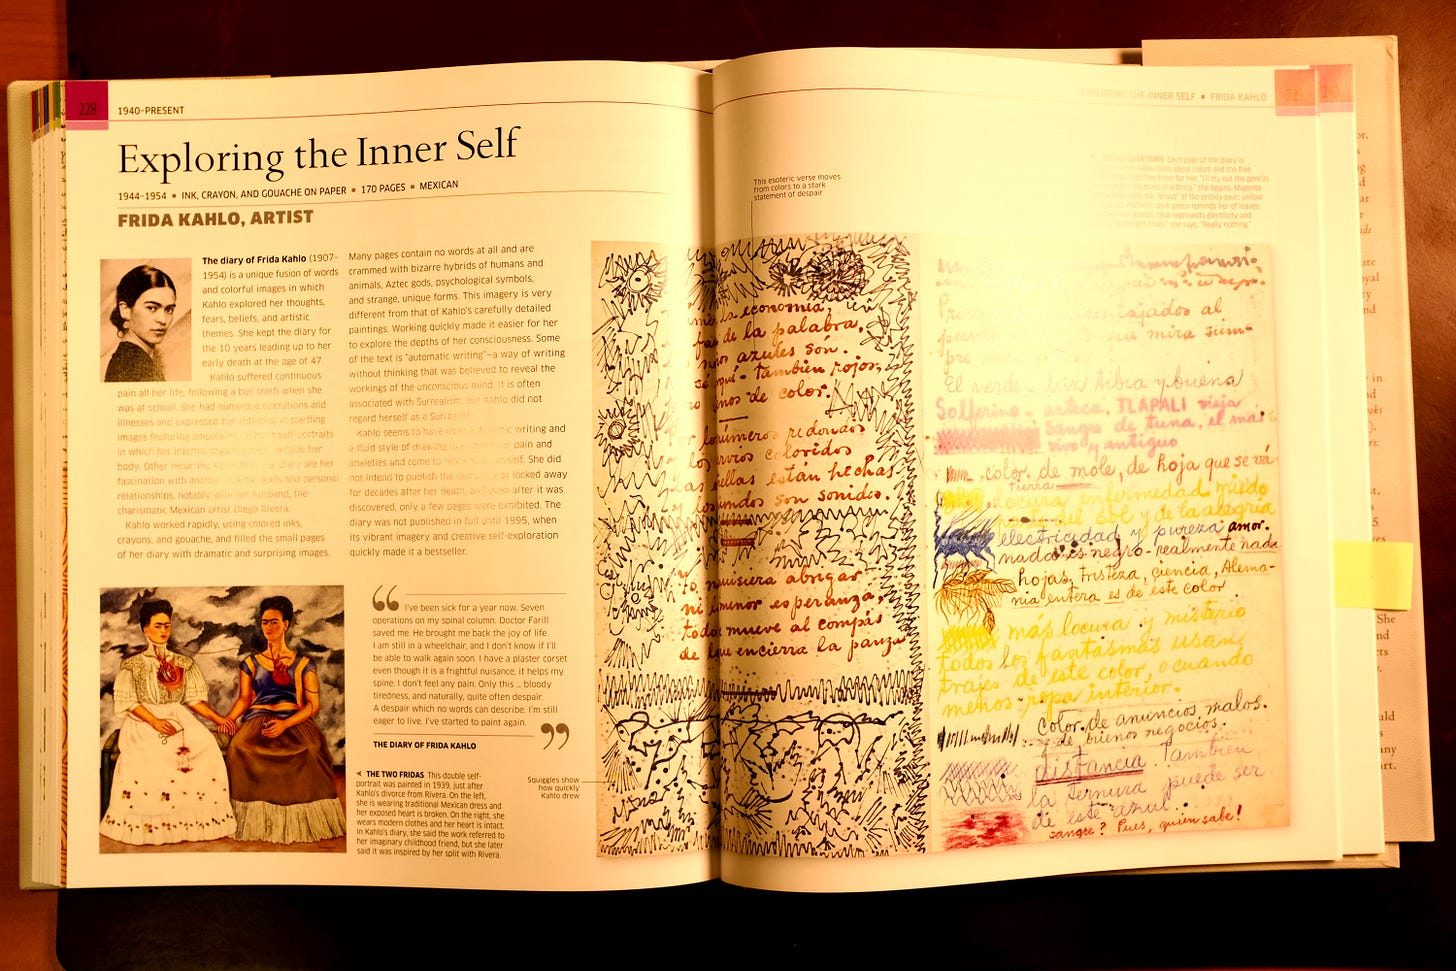 228
1940–PRESENT
Exploring the Inner Self
1944–1954 ▪ INK, CRAYON, AND GOUACHE ON PAPER ▪ 170 PAGES ▪ MEXICAN
FRIDA KAHLO, ARTIST
The diary of Frida Kahlo (1907–
1954) is a unique fusion of words
and colorful images in which
Kahlo explored her thoughts,
fears, beliefs, and artistic
themes. She kept the diary for
the 10 years leading up to her
early death at the age of 47.
Kahlo suffered continuous
pain all her life, following a bus crash when she
was at school. She had numerous operations and
illnesses and expressed her suffering in startling
images featuring
in which her internal
body. Other recurring diary are her
fascination with gods and personal
relationships, notably with her husband, the
charismatic Mexican artist Diego Rivera.
Kahlo worked rapidly, using colored inks,
crayons, and gouache, and filled the small pages
of her diary with dramatic and surprising images.
Many pages contain no words at all and are
crammed with bizarre hybrids of humans and
animals, Aztec gods, psychological symbols,
and strange, unique forms. This imagery is very
different from that of Kahlo's carefully detailed
paintings. Working quickly made it easier for her
to explore the depths of her consciousness. Some
of the text is "automatic writing"–a way of writing
without thinking that was believed to reveal the
workings of the unconscious mind. It is often
associated with Surrealism, but Kahlo did not
regard herself as a Surrealist.
Kahlo seems to have used automatic writing and
a fluid style of drawing pain and
anxieties and come to herself. She did
not intend to publish the locked away
for decades after her death, and even after it was
discovered, only a few pages were exhibited. The
diary was not published in full until 1995, when
its vibrant imagery and creative self-exploration
quickly made it a bestseller.
“ I've been sick for a year now. Seven
operations on my spinal column. Doctor Farill
saved me. He brought me back the joy of life.
I am still in a wheelchair, and I don't know if I'll
be able to walk again soon. I have a plaster corset
even though it is a frightful nuisance, it helps my
spine. I don't feel any pain. Only this ... bloody
tiredness, and naturally, quite often despair.
A despair which no words can describe. I'm still
eager to live. I've started to paint again. ”
THE DIARY OF FRIDA KAHLO
◄ THE TWO FRIDAS This double self-
portrait was painted in 1939, just after
Kahlo's divorce from Rivera. On the left,
she is wearing traditional Mexican dress and
her exposed heart is broken. On the right, she
wears modern clothes and her heart is intact.
In Kahlo's diary, she said the work referred to
her imaginary childhood friend, but she later
said it was inspired by her split with Rivera.
Squiggles show
how quickly
Kahlo drew
EXPLORING THE INNER SELF ▪ FRIDA KAHLO
243
This esoteric verse moves
from colors to a stark
statement of despair
Each page of the diary is
Kahlo talks about colors and the free
that they have for her. "I'll try out the pencils
to the point of infinity," she begins. Magenta
"blood" of the prickly pear; yellow
dark green reminds her of leaves,
blue represents electricity and
is black," she says, "Really nothing."
la economía
de la palabra,
azules son.
también rojos,
de color.
números redondos
coloridos
están hechas
son sonidos.
quisiera abrigar
ni menor esperanza,
todo mueve al compás
de encierra la panza
al
mira siem-
pre
El verde – luz tibia y buena
Solferino – azteca. TLAPALI vieja
Sangre de tuna, el más
vivo y antiguo
color de mole, de hoja que se va
tierra
locura enfermedad miedo
del sol y de la alegría
electricidad y pureza amor.
nada es negro – realmente nada
hojas, tristeza, ciencia, Alema-
nia entera es de este color
más locura y misterio
todos los fantasmas usan
trajes de este color, o cuando
menos ropa interior.
color de anuncios malos.
de buenos negocios.
distancia. También
la ternura puede ser
de este azul
sangre? Pues, quien sabe!
She